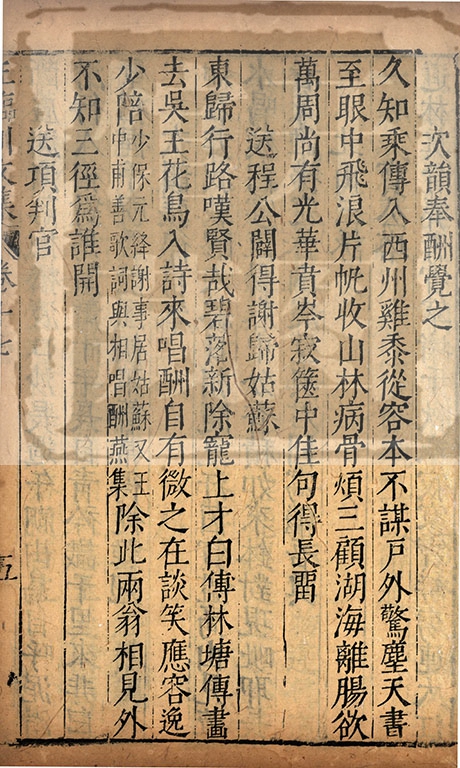 次韻奉酬覺之
久知乘傳入西州雞黍從容本不謀戶外驚塵天書
至眼中飛浪片帆收山林病骨煩三顧湖海離腸欲
萬周尚有光華賁岑寂篋中佳句得長畱
送程公闢得謝歸姑蘇
東歸行路嘆賢哉碧落新除寵上才白傅林塘傳畫
去吳王花鳥入詩來唱酬自有微之在談笑應容逸
少陪少保元絳謝事居姑蘇又王中甫善歌詞與相唱酬燕集除此兩翁相見外
不知三徑爲誰開
送項判官
王臨川文集卷十七 五